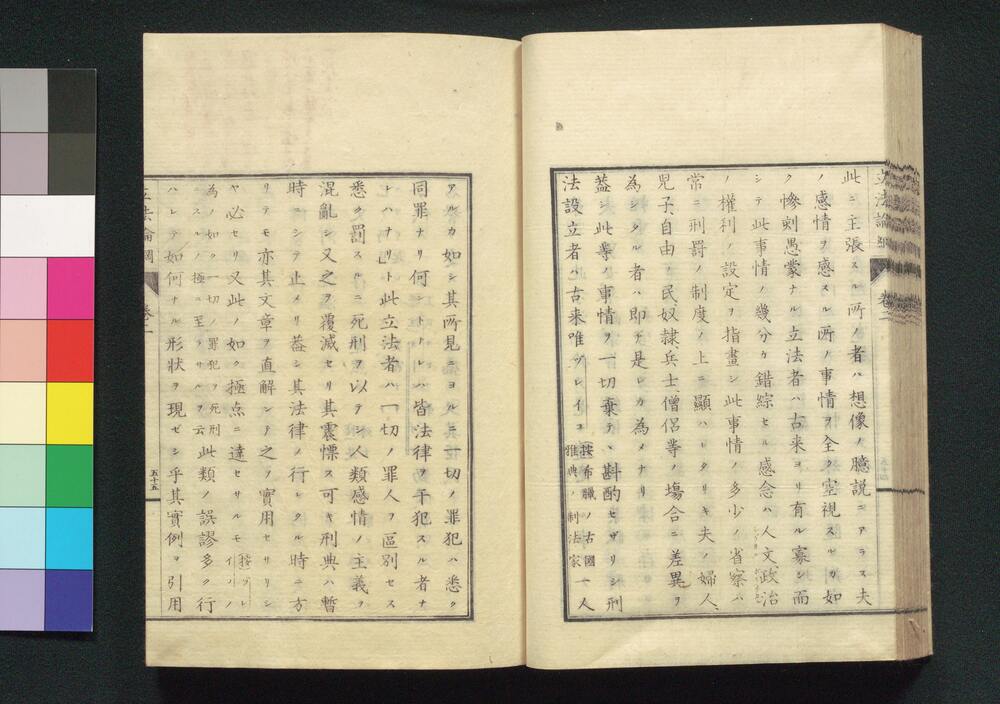 此ニ主張スル所ノ者ハ想像ノ臆説ニアラス夫
ノ感情ヲ感スル所ノ事情ヲ全ク空視スルカ如
ク慘刺愚蒙ナル立法者ハ古来ヨリ有ル寡シ而
シテ此事情ノ幾分カ錯綜セル感念ハ人文政治
ノ權利ノ設定ヲ指畫シ此事情ノ多少ノ省察ハ
常ニ刑罰ノ制度ノ上ニ顯ハレタリキ夫ノ婦人
兒子自由ノ民奴隷兵士僧侶等ノ塲合ニ差異ヲ
為シタル者ハ即チ是レカ為メナリ
蓋シ此等ノ事情ヲ一切棄テヽ斟酌セザリシ刑
法設立者ハ古来唯ヅレイコ
按希臘ノ古國
雅典ノ制法家
一人
立法論綱 卷二
アルカ如シ其所見ニヨルニ一切ノ罪犯ハ悉ク
同罪ナリ何ントナレハ皆法律ヲ干犯スル者ナ
レハナリト此立法者ハ一切ノ罪人ヲ區別セス
悉ク罰スルニ死刑ヲ以テシ人類感情ノ主義ヲ
混亂シ又之ヲ覆滅セリ其震慄ス可キ刑典ハ暫
時ニシテ止メリ蓋シ其法律ノ行レタル時ニ方
リテモ亦其文章ヲ直解シテ之ヲ實用セサリシ
ヤ必セリ又此ノ如ク極点ニ達セサルモ
按ヅレイコノ
為ノ如ク一切ノ罪犯ヲ死刑
スルノ極ニ至ラサルヲ云
此類ノ誤謬多ク行
ハレテ如何ナル形状ヲ現ゼシ乎其實例ヲ引用
立法論綱 卷二 五十五